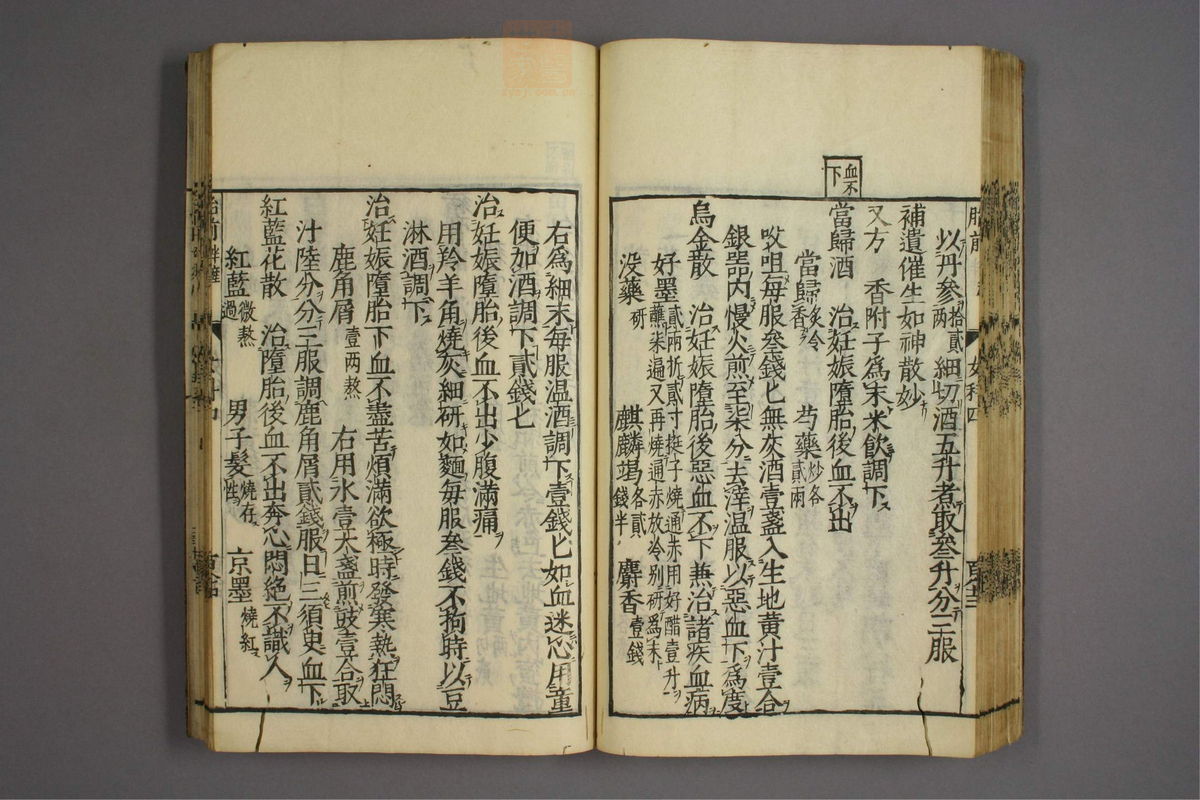 血不
下
以丹參拾貳两細切酒五升煮取叄升分三服
補遺催生如神散妙
又方　香附子爲末米飲調下
當歸酒　治妊娠墮胎後血不出
當歸炙令香　芍藥炒各貳兩
㕮咀每服叄錢匕無灰酒壹盞入生地黄汁壹合
銀噐内慢火煎至柒分去滓温服以惡血下爲度
烏金散　治妊娠墮胎後惡血不下兼治諸疾血病
好墨貳兩折貳寸挺子燒通赤用好醋壹升蘸柒遍又再燒通赤放冷别研爲末
没藥研　麒麟竭各貳錢半　麝香壹錢
右爲細末每服温酒調下壹錢匕如血迷心用童
便加酒調下貳錢匕
治妊娠墮胎後血不出少腹滿痛
用羚羊角燒灰細研如麵每服叄錢不拘時以豆
淋酒調下
治妊娠墮胎下血不盡苦煩滿欲極時發寒熱狂悶
鹿角屑壹两熬　右用水壹大盞煎豉壹合取
汁陸分分三服調鹿角屑貳錢服日三須臾血下
紅藍花散　治墮胎後血不出奔心悶絶不識人
紅藍微熬過　男子髮燒存性　京墨燒紅